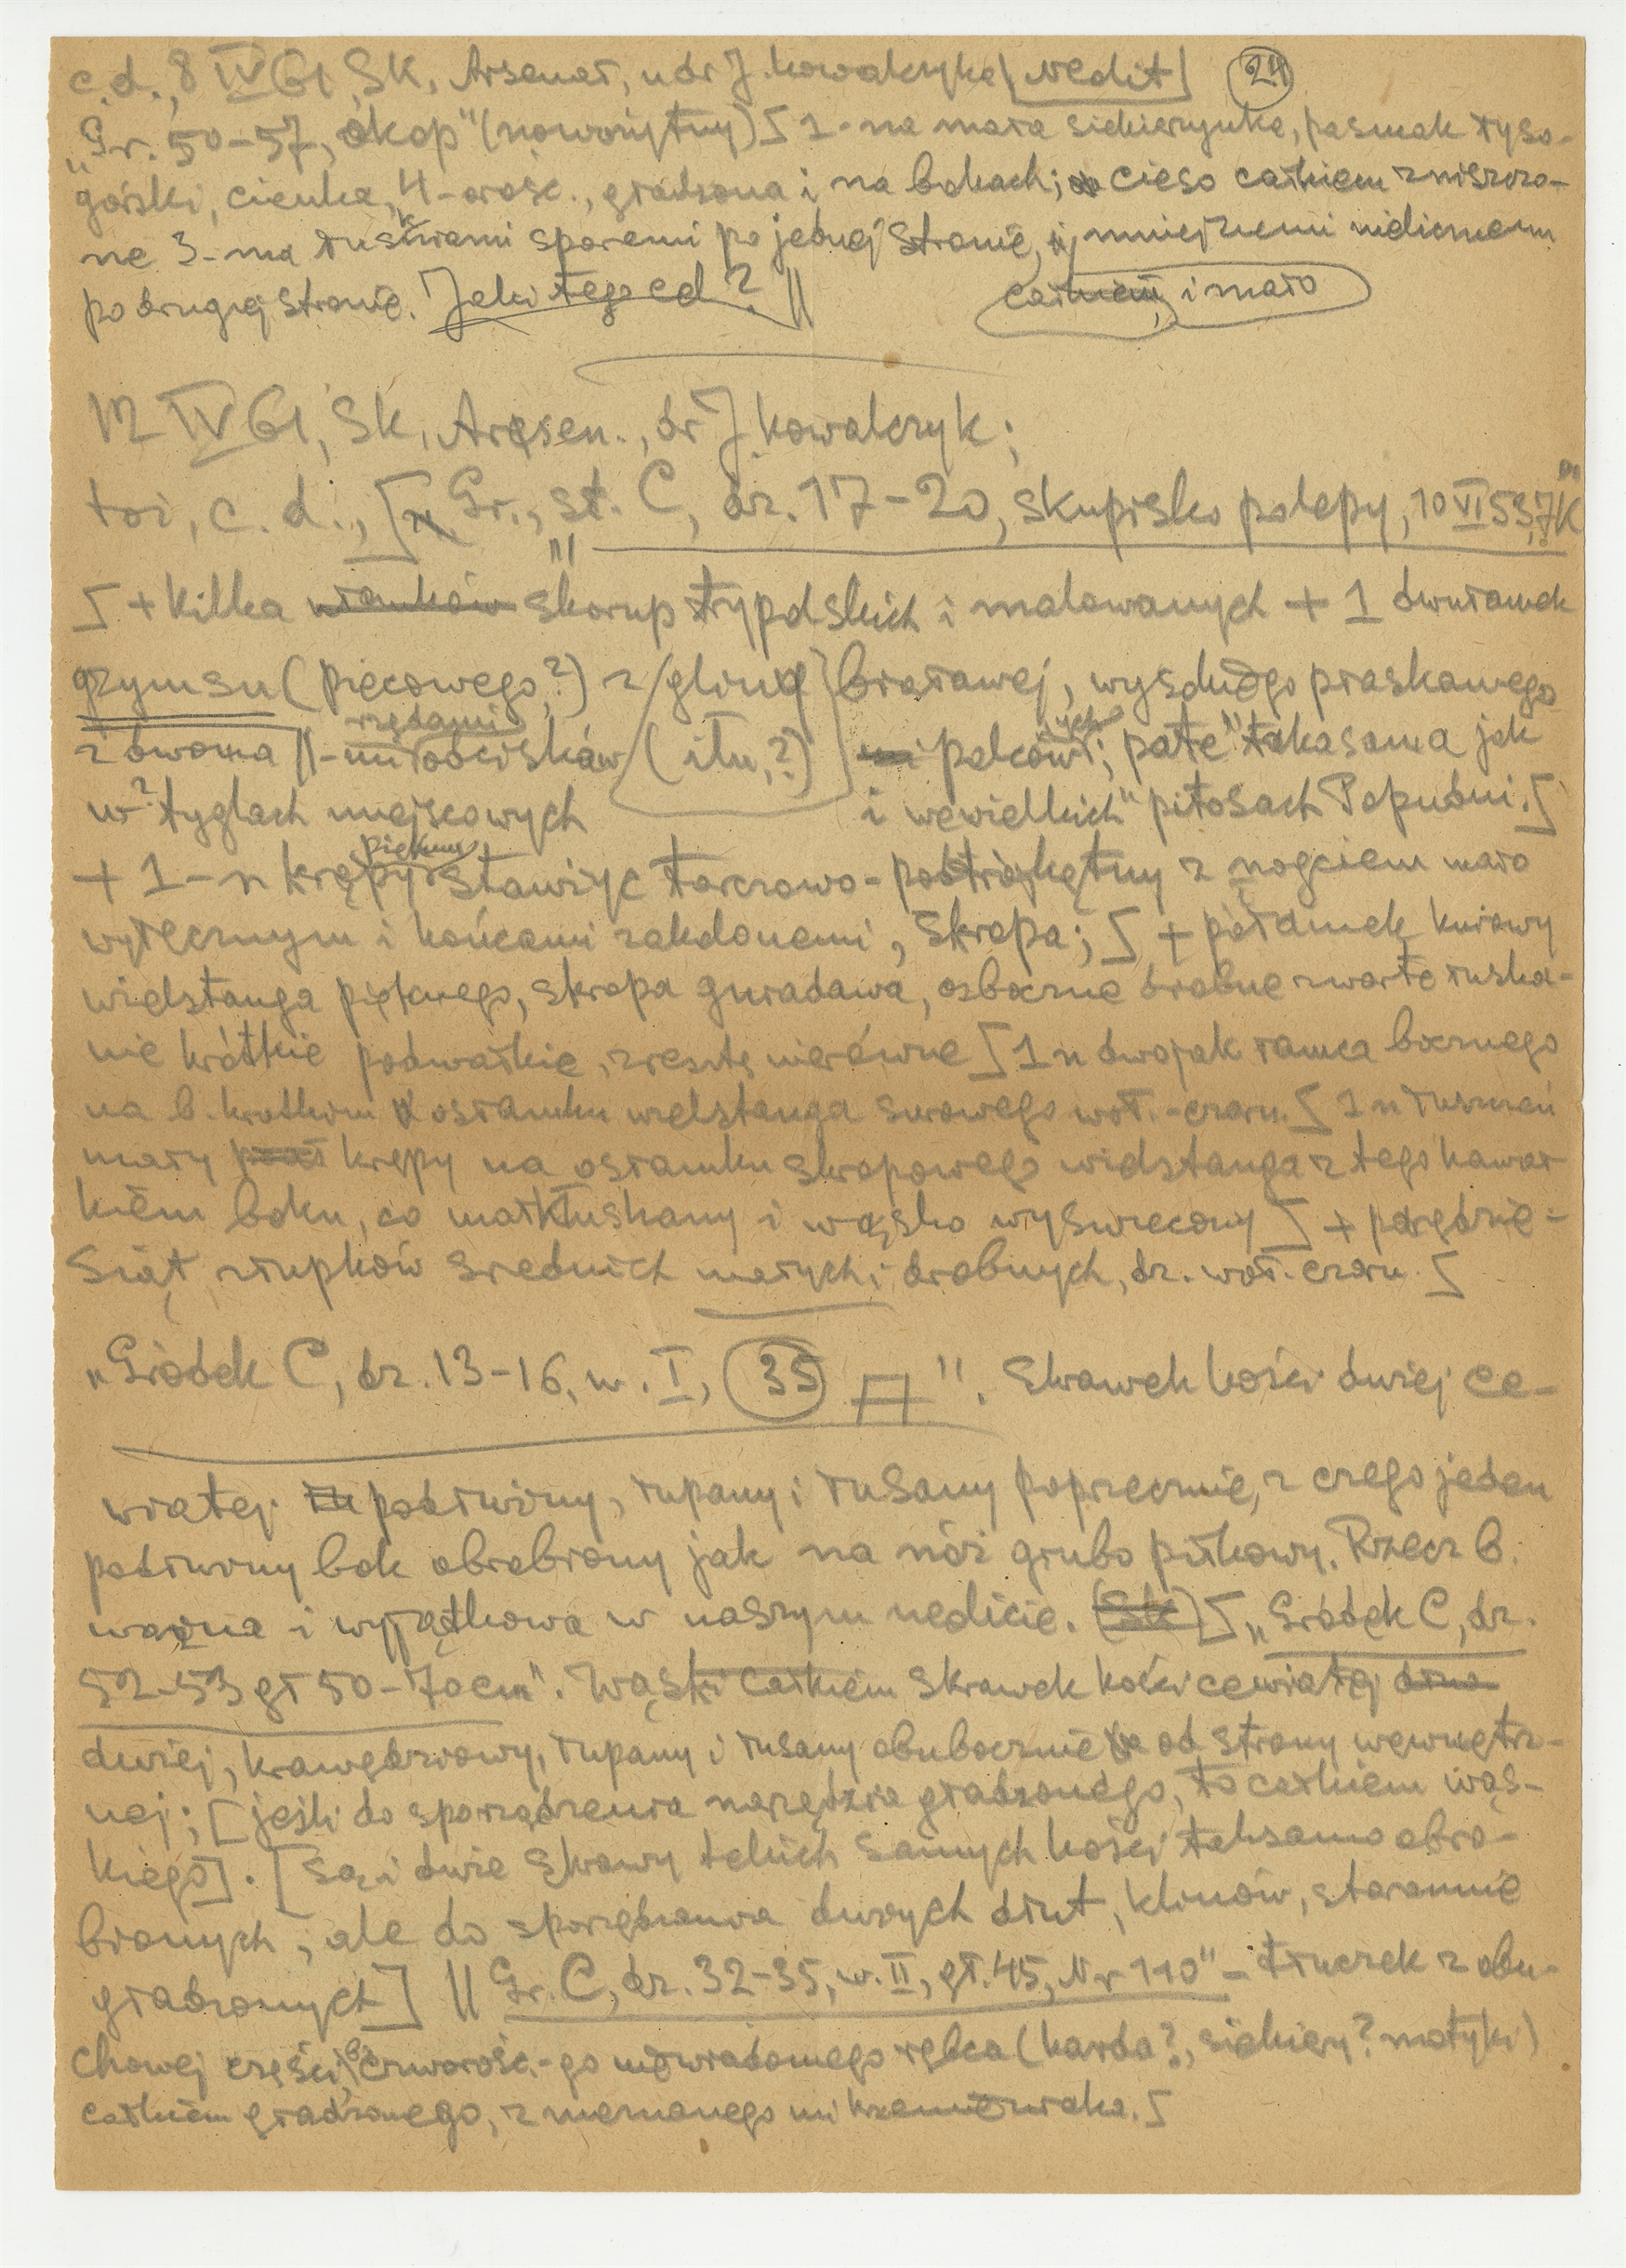 c.d., 8 IV 61, SK, Arsenał, u dr J. Kowalczyka [Nedit] 24
„Gr. 50-57, okop" (nowożytny) ∫ 1-na mała siekierzynka, pasiak łyso-
górski, cienka, 4-ość., gładzona i na bokach; cieso całkiem zniszczo-
ne 3-ma łuskami sporemi po jednej stronie, mniejszemi nielicznemi
po drugiej stronie. Jaki tego cel? || całkiem, i mało
12 IV 61, SK, Arsen., dr J. Kowalczyk;
toż, c.d., [Gr., st. C, dz. 17-20, skupisko polepy, 10 VI 53, JK"
∫ + kilka wianków skorup trypolskich i malowanych + 1 dwułamek
gzymsu (piecowego?) z gliny białawej, piaskawego
z dwoma ||-mi rzędami (iłu,?) palcowych; pate" taka sama jak
w? tyglach miejscowych i wewielkich" pitosach Popudni. ∫
+ 1-n krępy piękny stawżyc tarczowo-podtrójkętny z nogciem mało
wyłęcznym i końcami, skropa; ∫ + połamek
wielstanga pięknego, skropa gniadawa, drobne zwarte łuska-
nie krótkie, zresztę nierówne ∫ 1 n dwojak łamca bocznego
na b. krótkim osłamku wielstanga surowego woł.-czarn. ∫ 1 n
mały krępy na osłamku skropowego widstanga z tego kawał
kiem boku, co małkłuskany i wąsko wyświecony ∫ +
siąt złupków średnich małych i drobnych, dz. woł. czarn. ∫
„Gródek C, dz. 13-16, w. I, 35 ". Skrawek kości dużej ce-
wiatej podłużny, łupany i łusany poprzecznie, z czego jeden
podłużny bok obrobiony jak na nóż grubo piłkowy. Rzecz b.
ważna i wyjątkowa w naszym nedicie. (Sk) ∫ „Gródek C, dz.
52-53 gł 50-70 cm". Wąski całkiem skrawek kości cewiatej
dużej, krawędziowy, łupany i łusany obubocznie od strony wewnętrz-
nej; [jeśli do sporządzenia narzędzia gładzonego, to całkiem wąs-
kiego]. [Są i dwie skrawy takich samych kości taksamo obro-
bionych, ale do sporządzania dużych dłut, klinów, starannie
gładzonych] || Gr. C, dz. 32-35, w. II, gł. 45, Nr 110" - tłuczek z obu-
chowej części, czworość.-go niewiadomego rębca (karda?, siekiery? motyki)
całkiem gładzonego, z nieznanego mi krzemieniaka. ∫